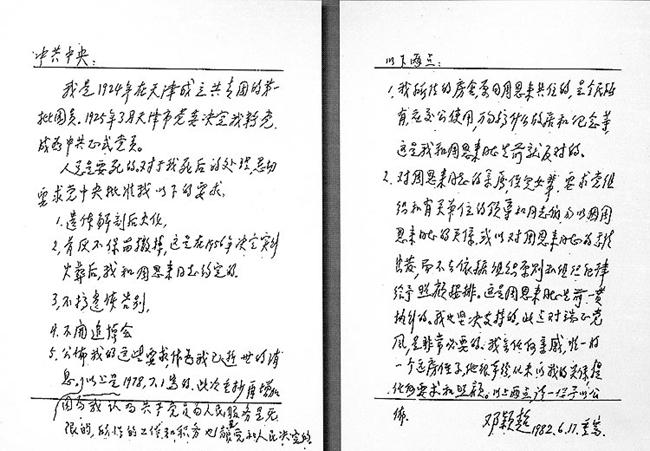 中共中央：
我是1924年在天津成立共青团的第一
批团员。1925年3月天津市党委决定我转党，
成为中共正式党员。
人总是要死的。对于我死后的处理，恳切
要求党中央批准我以下的要求。
1.遗体解剖后火化。
2.骨灰不保留，撒掉，这是在1956年决定实行
火葬后，我和周恩来同志约定的。
3.不搞遗体告别。
4.不开追悼会
5.公布我的这些要求，作为我已逝世的消
息。以上是1978.7.1写的。此次重抄再增加
因为我认为共产党员为人民服务是无
限的，所作的工作和职务也都是党和人民决定的
以下两点：
1.我所住的房舍，原同周恩来共住的，是全民所
有，应交公使用，万勿搞什么故居和纪念等，
这是我和周恩来同志生前就反对的。
2.对周恩来同志的亲属，侄儿女辈，要求党组
织和有关单位的领导和同志们，勿以因周
恩来同志的关系，或以对周恩来同志的感情
出发，而不去依据组织原则和组织纪律
给予照顾安排。这是周恩来同志生前一贯
执行的。我也坚决支持的。此点对端正党
风，是非常必要的。我无任何亲戚，唯一的
一个远房侄子，他很本分，从未以我的关系提
任何要求和照顾。以上两点请一并予以公
布。
邓颖超
1982.6.17.重写